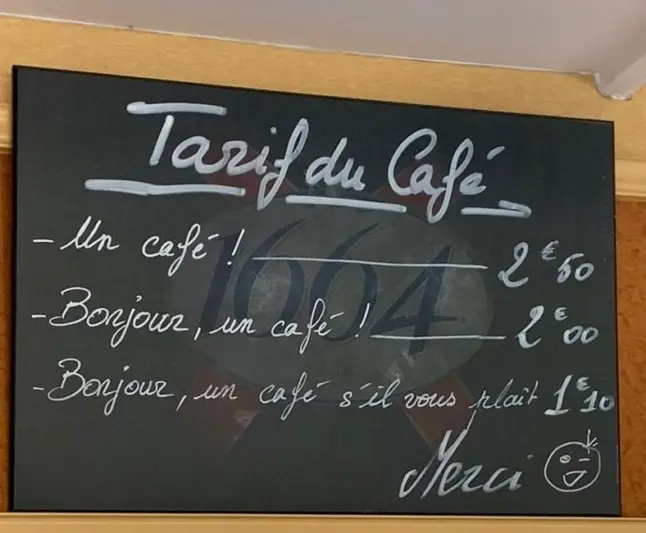 Tarif du Café
1664
- Un café ! 2€50
- Bonjour, un café ! 2€00
- Bonjour, un café s'il vous plait 1€10
Merci